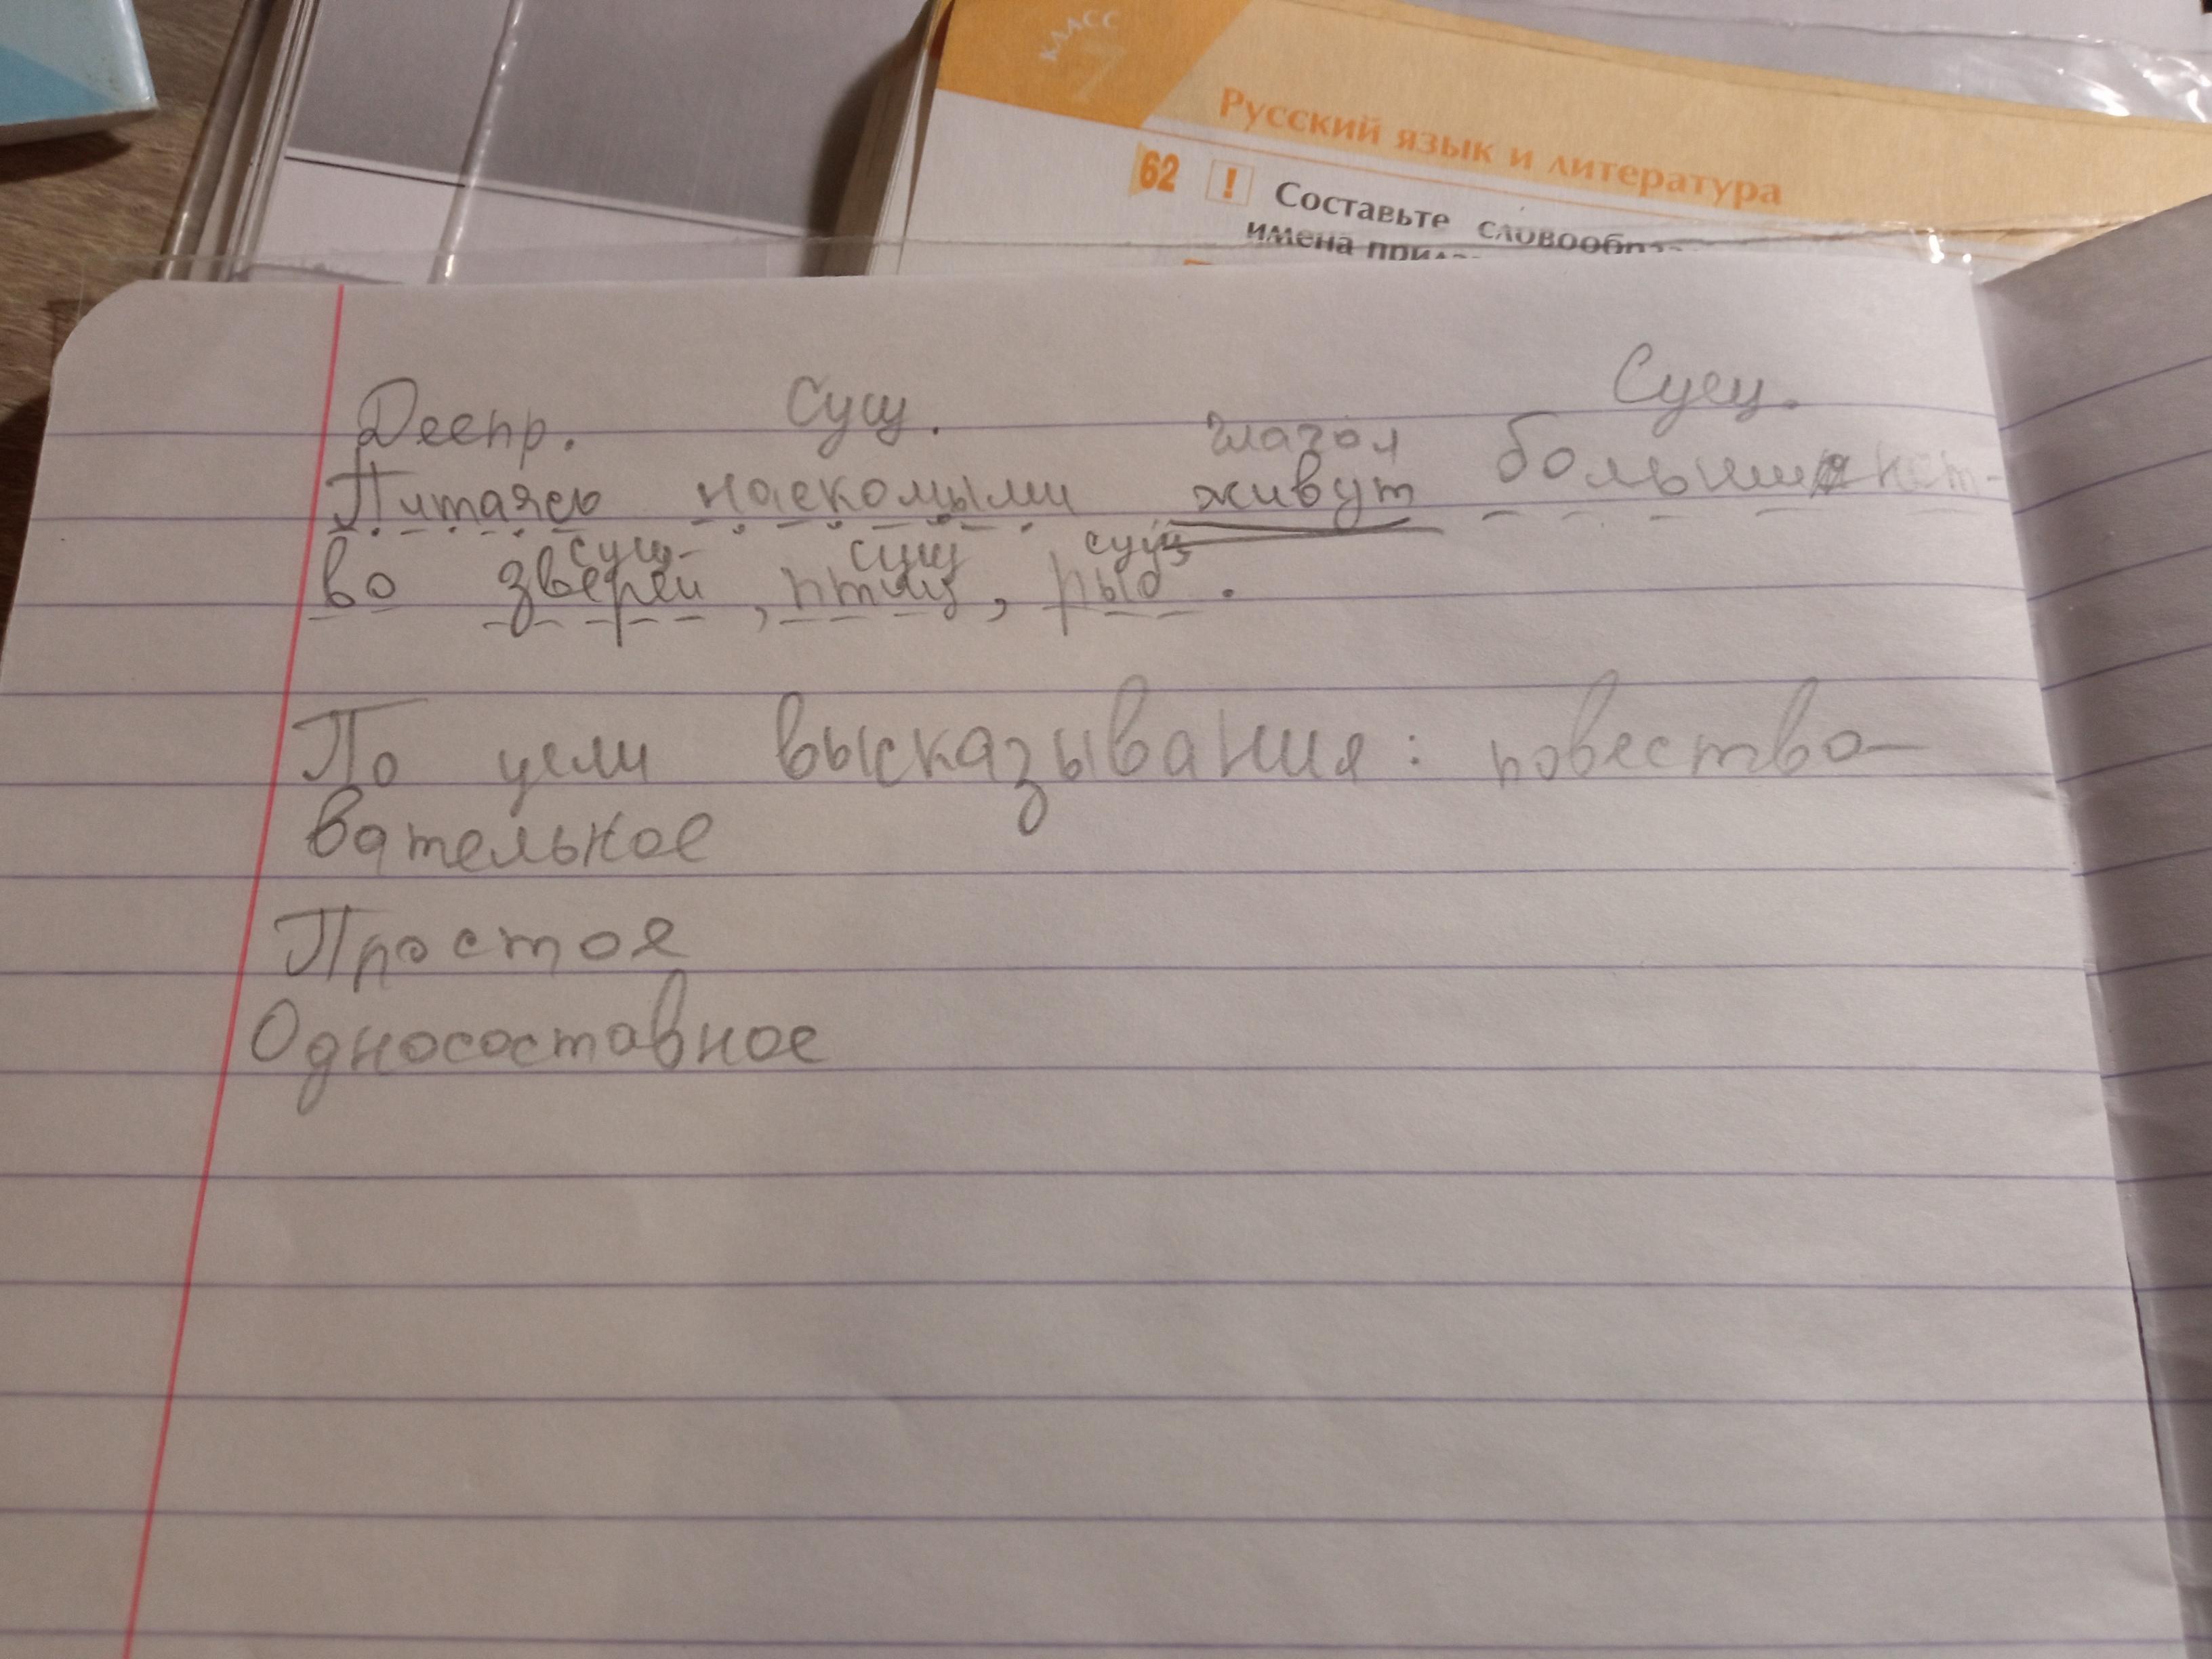 КЛАСС
7
Русский язык и литература
62 ! Составьте словообра
имена прила
Деепр. Сущ. глагол Сущ.
Питаясь насекомыми живут большинст-
сущ. сущ сущ
во зверей, птиц, рыб.
По цели высказывания: повество-
вательное
Простое
Односоставное